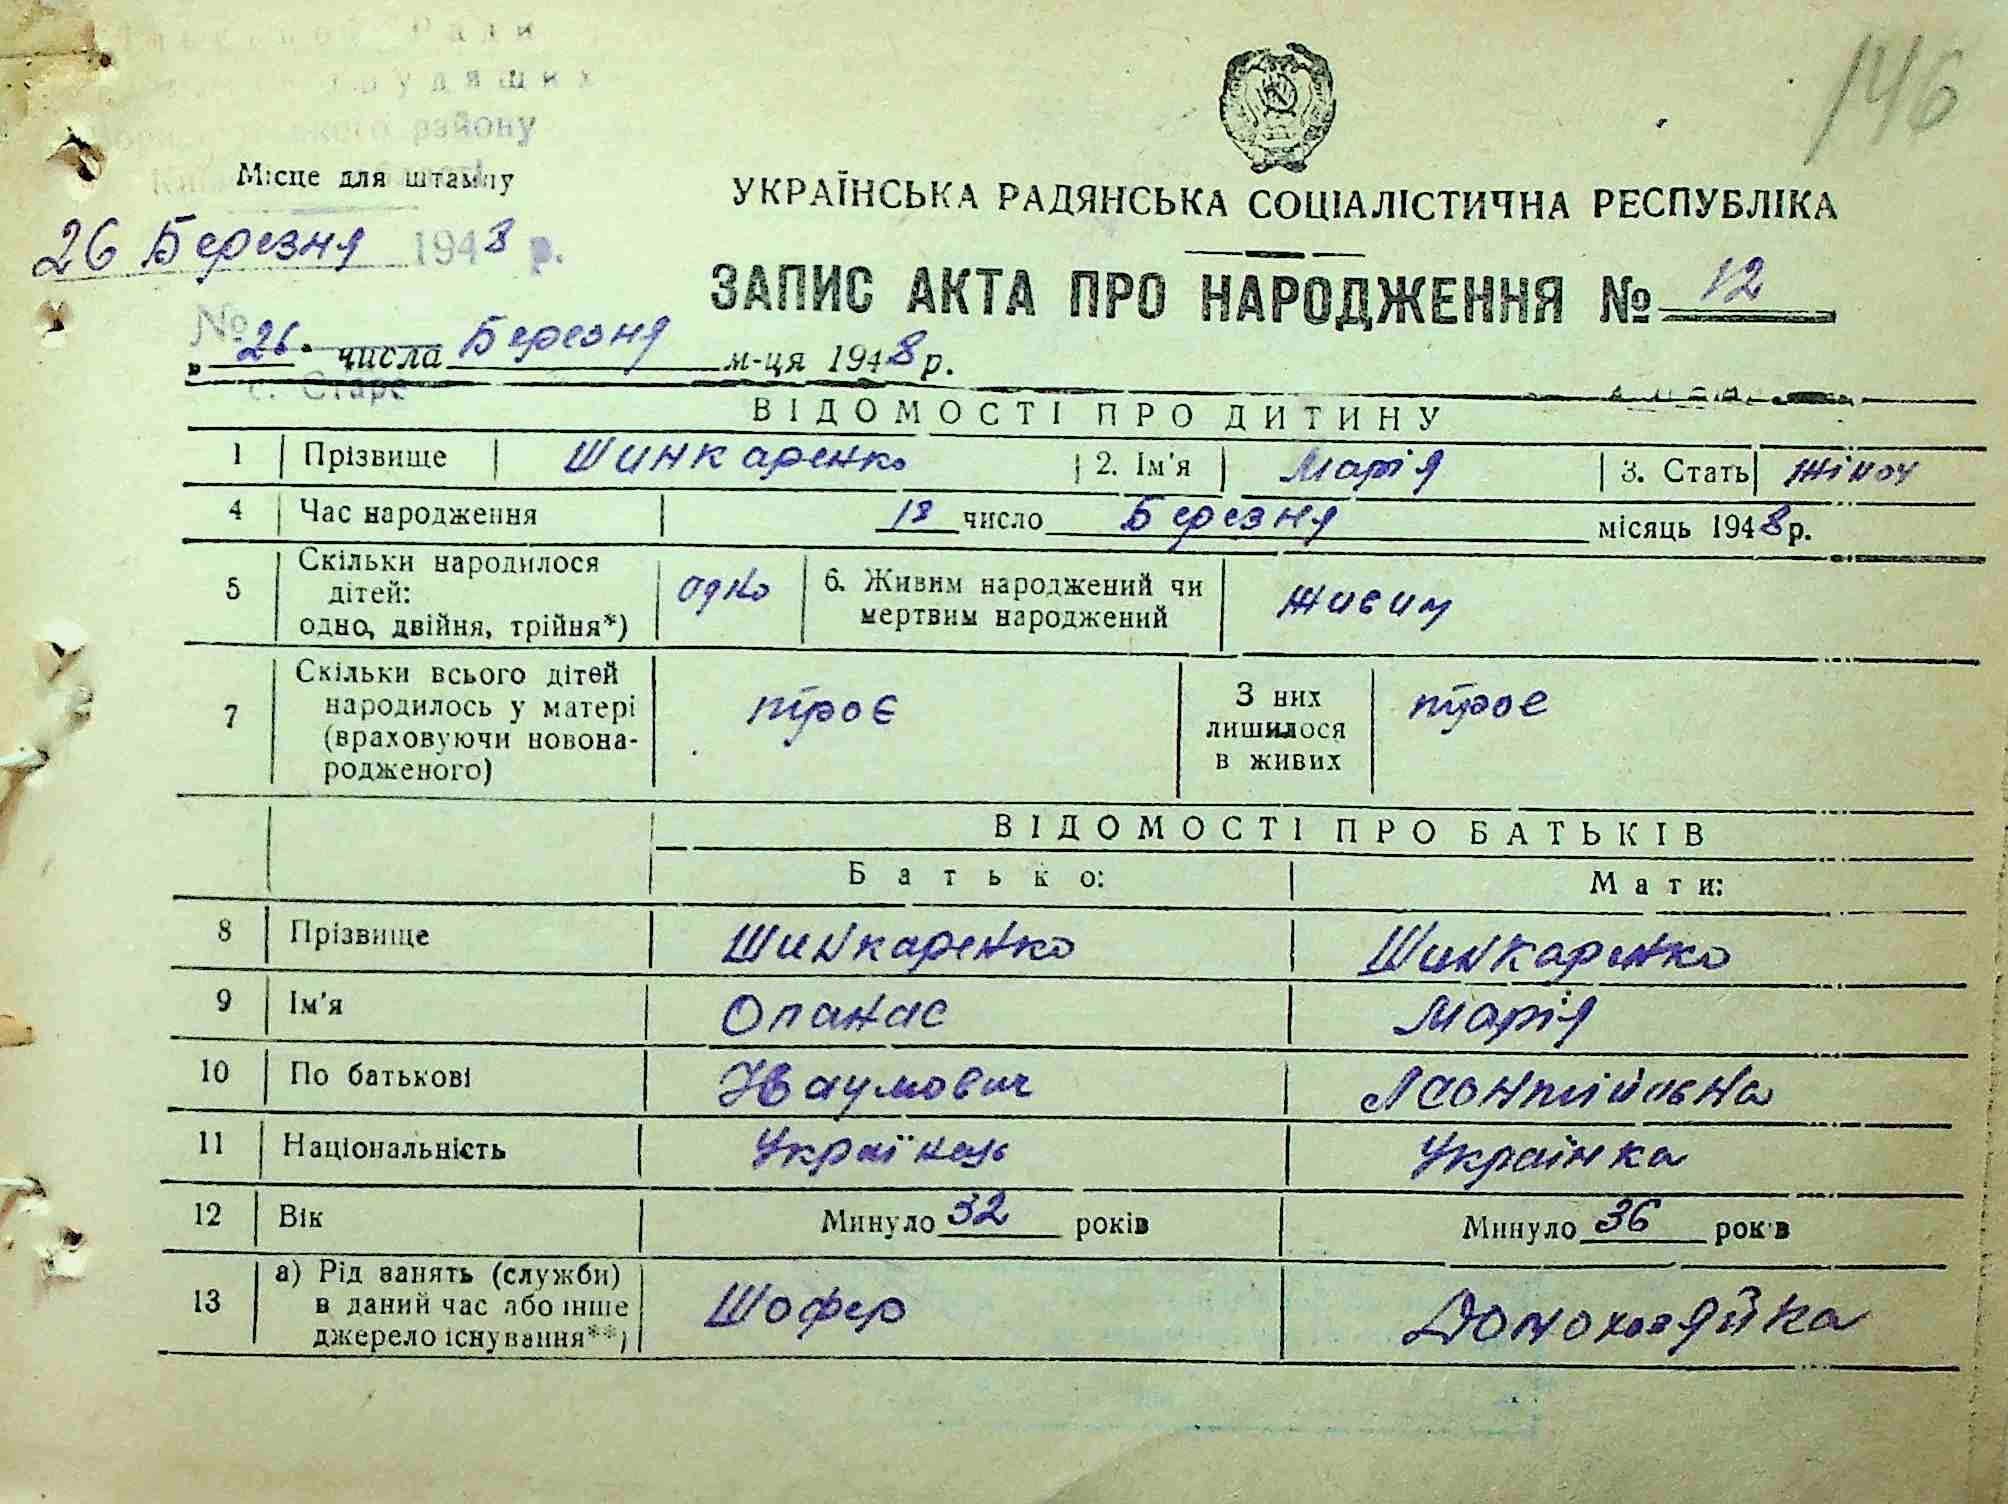 Ради
району
146
Місце для штампу
УКРАЇНСЬКА РАДЯНСЬКА СОЦІАЛІСТИЧНА РЕСПУБЛІКА
26 Березня 1948 р.
ЗАПИС АКТА ПРО НАРОДЖЕННЯ № 12
№
„ 26 " числа Березня м-ця 1948 р.
с. Старе
ВІДОМОСТІ ПРО ДИТИНУ
1 Прізвище Шинкаренко 2. Ім'я Марія 3. Стать жіноч
4 Час народження 18 число Березня місяць 1948 р.
5 Скільки народилося дітей: одно, двійня, трійня*) одно 6. Живим народжений чи мертвим народжений живим
7 Скільки всього дітей народилось у матері (враховуючи новонародженого) троє З них лишилося в живих троє
ВІДОМОСТІ ПРО БАТЬКІВ
Батько: Мати:
8 Прізвище Шинкаренко Шинкаренко
9 Ім'я Опанас Марія
10 По батькові Наумович Леонтіївна
11 Національність Українець Українка
12 Вік Минуло 32 років Минуло 36 років
13 а) Рід занять (служби) в даний час або інше джерело існування**) Шофер Домохозяйка